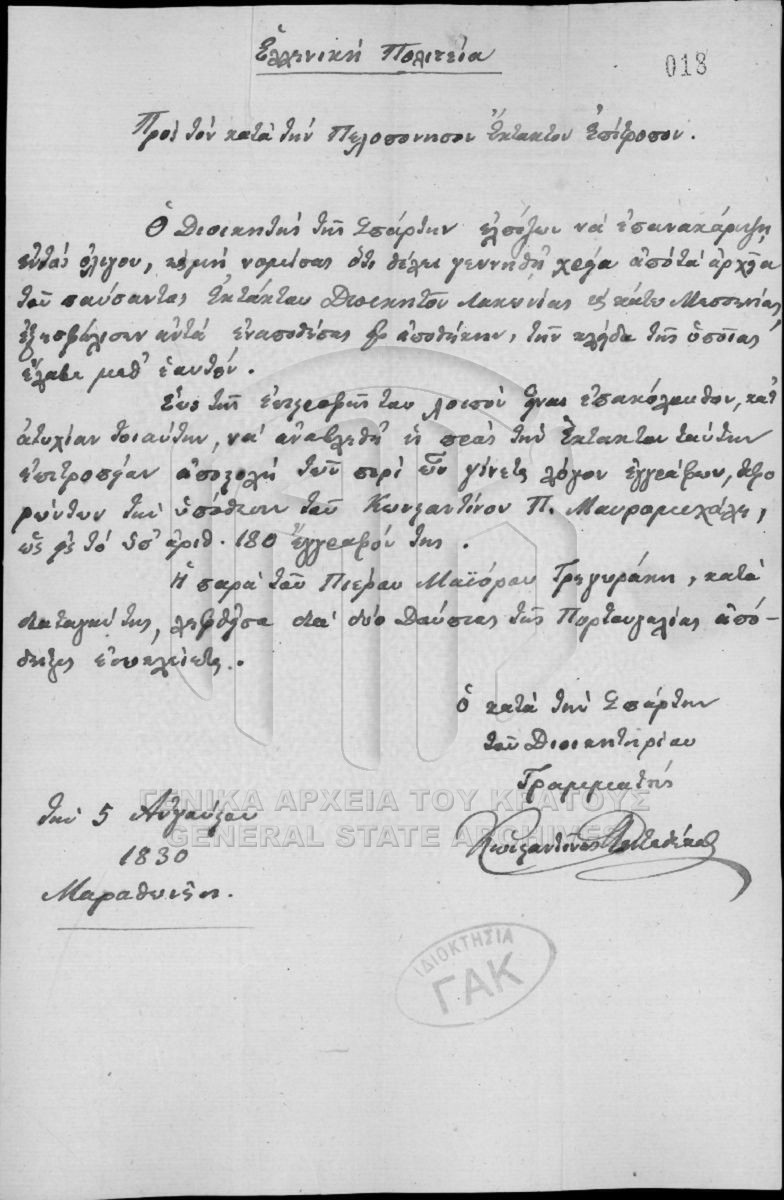 Ἑλληνικὴ Πολιτεία
018
Πρὸς τὸν κατὰ τὴν Πελοπόνησον Ἔκτακτον Ἐπίτροπον.
Ὁ Διοικητὴς τῆς Σπάρτης ἐλπίζων νὰ ἐπανακάμψῃ
ἐντὸς ὀλίγου, καὶ μὴ νομίσας ὅτι θέλει γεννηθῆ χρεία ἀπὸ τὰ ἀρχεῖα
τοῦ παύσαντος Ἐκτάκτου Διοικητοῦ Λακωνίας καὶ κάτω Μεσσηνίας,
ἐξησφάλισεν αὐτὰ ἐναποθέσας ἀποθήκην, τὴν κλῆδα τῆς ὁποίας
ἔλαβε μεθ' ἑαυτοῦ.
Ἕως τῆς ἐπιστροφῆς του λοιπὸν εἶναι ἐπακόλουθον, κατ'
ἀτυχίαν τοιαύτην, νὰ ἀναβληθῇ ἡ πρὸς τὴν Ἔκτακτον ταύτην
ἐπιτροπείαν ἀποστολὴ τῶν περὶ ὧν γίνεται λόγον ἐγγράφων, ἀφο-
ρώντων τὴν ὑπόθεσιν τοῦ Κωνσταντίνου Π. Μαυρομιχάλη,
ὡς μὲ τὸ ὑπ' ἀριθ. 180 ἔγγραφόν της.
Ἡ παρὰ τοῦ Πιέρου Μαϊόρου Γρηγοράκη, κατὰ
διαταγήν της, ληφθεῖσα διὰ δύο Δαύπιας τῆς Πορτουγαλίας ἀπό-
δειξις ἐσωκλείεται.
Ὁ κατὰ τὴν Σπάρτην
τοῦ Διοικητηρίου
Γραμματεὺς
Κωνσταντῖνος
τὴν 5 Αὐγούστου
1830
Μαραθωνῆσι.
ΓΕΝΙΚΑ ΑΡΧΕΙΑ ΤΟΥ ΚΡΑΤΟΥΣ
GENERAL STATE ARCHIVES
ΙΔΙΟΚΤΗΣΙΑ
ΓΑΚ